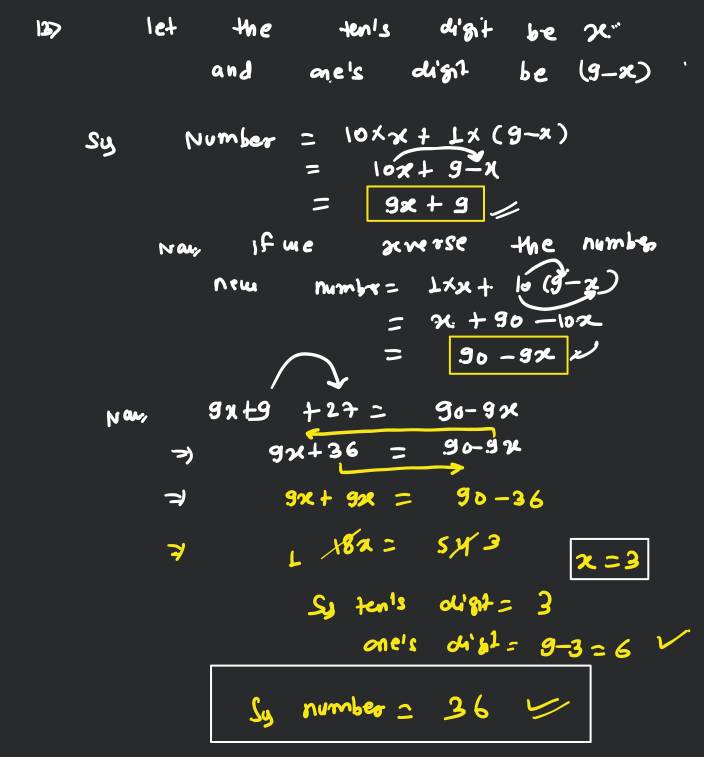 13> let the ten's digit be x
and one's digit be (9-x)
Sy Number = 10×x + 1×(9-x)
= 10x + 9-x
= 9x + 9
Now, if we reverse the number
new number = 1×x + 10(9-x)
= x + 90 - 10x
= 90 - 9x
Now, 9x+9 +27 = 90-9x
⇒ 9x+36 = 90-9x
⇒ 9x + 9x = 90-36
⇒ 1 18x = 54 3
x = 3
Sy ten's digit = 3
one's digit = 9-3 = 6 ✓
Sy number = 36